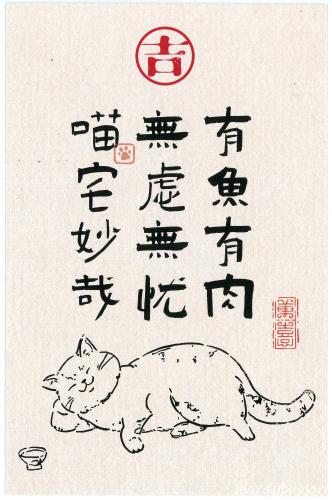 吉
有魚有肉
無虑無忧
喵宅妙哉